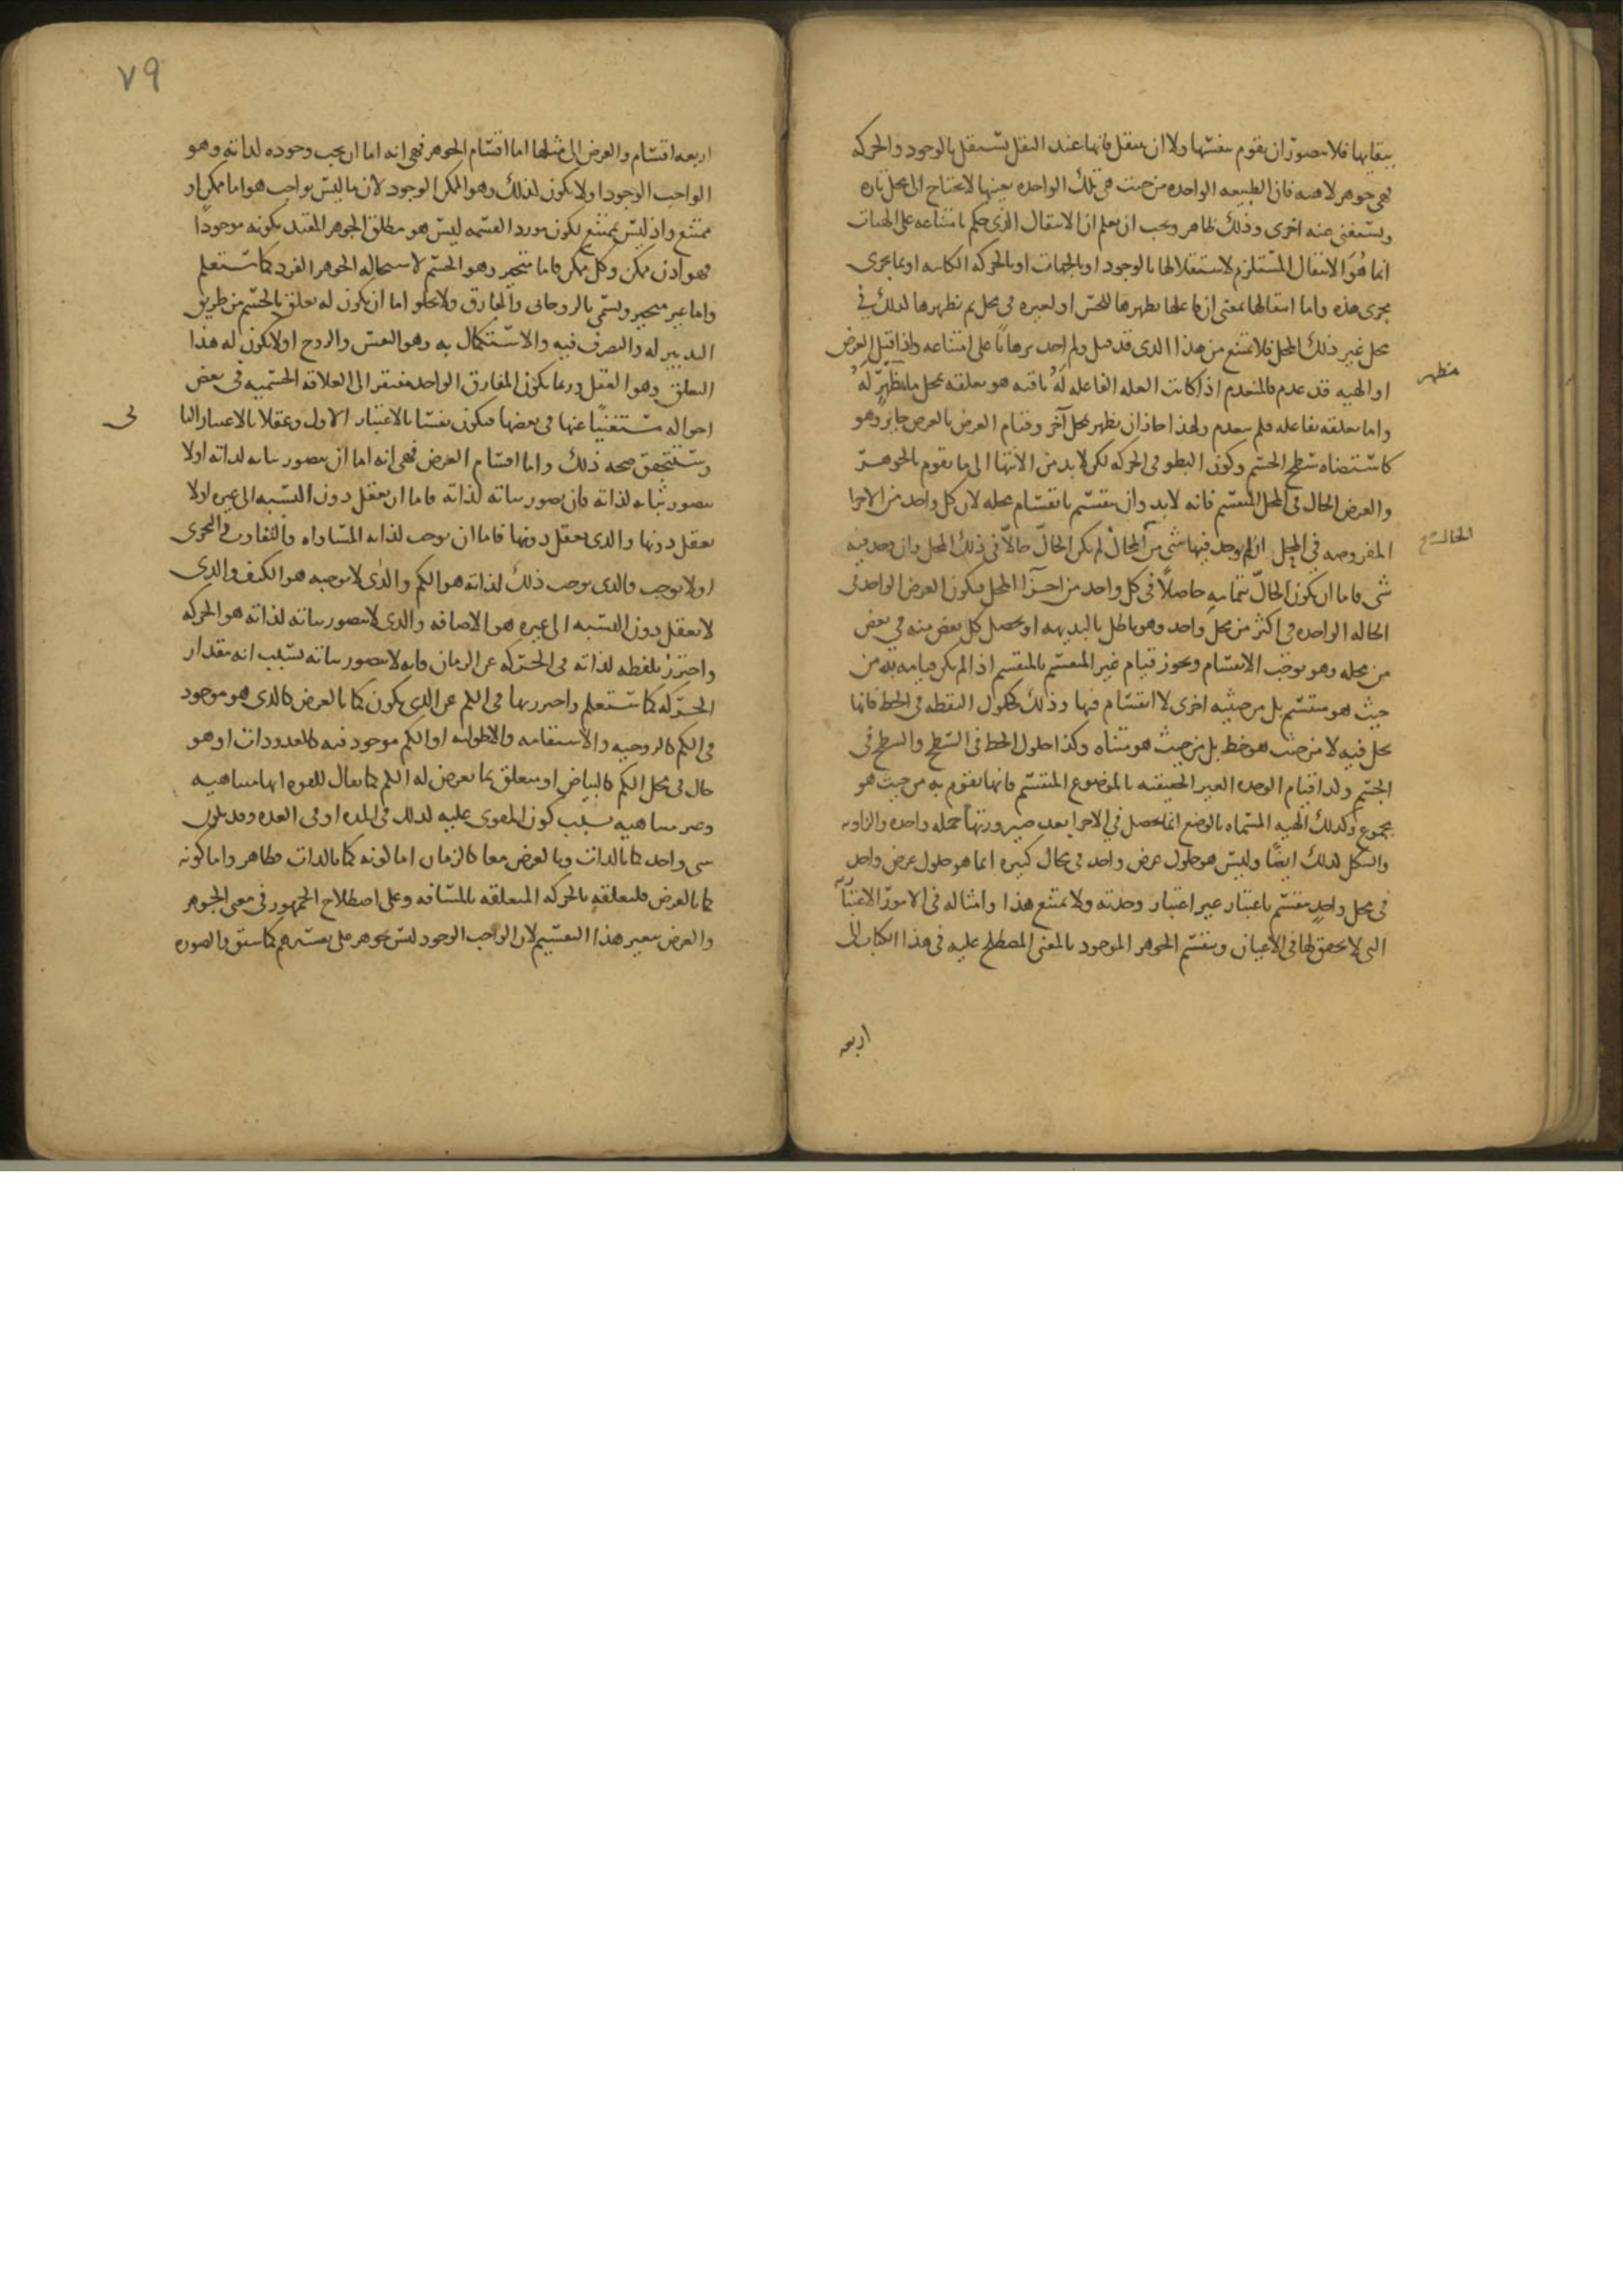 ببقايها فلا يتصور ان يقوم بنفسها ولا ان ينتقل فانها عند النقل تستقل بالوجود والحركه
فهى جوهر لا هيه فان الطبيعه الواحده من حيث هى تلك الواحده بعينها لا يحتاج الى محل تاره
ويستغنى عنه اخرى وذلك ظاهر ويجب ان يعلم ان الانتقال الذى حكم بامتناعه على الهيات
انما هُوَ الانتقال المستلزم لاستقلالها بالوجود او بالجهات او بالحركه او بما يجرى
مجرى هذه واما انتقالها بمعنى ان فاعلها يظهرها للحس او لغيره فى محل ثم يظهرها كذلك فى
محل غير ذلك المحل فلا يمتنع من هذا الذى قد قيل ولم اجد برهانًا على امتناعه واذا قيل العرض
مظهر
او الهيه قد عدم فالمنعدم اذا كانت العله الفاعله لَهُ باقيه هو تعلقه بمحل ما يظهر لَهُ
واما تعلقه بفاعله فلم ينعدم ولهذا جاز ان يظهر بمحل آخر وقيام العرض بالعرض جايز وهو
كاستضاه سطح الجسم وكون البطو فى الحركه لكن لا بد من الانتها الى ما يقوم بالجوهر
والعرض الحال فى المحل المنقسم فانه لا بد وان ينقسم بانقسام محله لان كل واحد من الاجزا
الحال
المفروضه فى المحل ان لم يوجد فيها شى من الحال لم يكن الحالّ حالّا فى ذلك المحل وان وجد فيه
شى فاما ان يكون الحالّ بتمامه حاصلًا فى كل واحد من اجزا المحل فيكون العرض الواحد فى
الحاله الواحده فى اكثر من محل واحد وهو باطل بالبديهه او يحصل كل بعض منه فى بعض
من محله وهو يوجب الانقسام ويجوز قيام غير المنقسم بالمنقسم اذا لم يكن قيامه به من
حيث هو منقسم بل من حيثيه اخرى لا انقسام فيها وذلك كحلول النقطه فى الخط فانها
تحل فيه لا من حيث هو خط بل من حيث هو متناه وكذا حلول الخط فى السطح والسطح فى
الجسم وكذا قيام الوحده الغير الحقيقيه بالموضوع المنقسم فانها تقوم به من حيث هو
مجموع وكذلك الهيه المسماه بالوضع انما تحصل فى الاجزا بعد صيرورتها جمله واحده والزاويه
والشكل كذلك ايضًا وليس هو حلول عرض واحد فى محال كثيره انما هو حلول عرض واحد
فى محل واحد منقسم باعتبار غير اعتبار وحدته ولا يمتنع هذا وامثاله فى الامور الاعتباريه
التى لا تحقق لها فى الاعيان وينقسم الجوهر الموجود بالمعنى المصطلح عليه فى هذا الكتاب الى
اربعه
٧٩
اربعه اقسام والعرض الى مثلها اما اقسام الجوهر فهى انه اما ان يجب وجوده لذاته وهو
الواجب الوجود او لا يكون كذلك وهو الممكن الوجود لان ما ليس بواجب هو اما ممكن او
ممتنع واذ ليس بممتنع لكون مورد القسمه ليس هو مطلق الجوهر المقيد بكونه موجودًا
فهو اذن ممكن وكل ممكن فاما متحيز وهو الجسم لاستحاله الجوهر الفرد كما ستعلم
واما غير متحيز ويسمى بالروحانى والمفارق ولا يخلو اما ان يكون له تعلق بالجسم من طريق
التدبير له والتصرف فيه والاستكمال به وهو النفس والروح او لا يكون له هذا
التعلق وهو العقل وربما يكون المفارق الواحد مفتقرا الى العلاقه الجسميه فى بعض
احواله مستغنيًا عنها فى بعضها فيكون نفسًا بالاعتبار الاول وعقلا بالاعتبار الثا
نى
وستتحقق صحه ذلك واما اقسام العرض فهى انه اما ان يتصور ثباته لذاته او لا
يتصور ثباته لذاته فان تصور ثباته لذاته فاما ان يعقل دون النسبه الى غيره او لا
يعقل دونها والذى يعقل دونها فاما ان يوجب لذاته المساواه والتفاوت والتجزى
او لا يوجب والذى يوجب ذلك لذاته هو الكم والذى لا يوجبه هو الكيف والذى
لا يعقل دون النسبه الى غيره هو الاضافه والذى لا يتصور ثباته لذاته هو الحركه
واحترز بلفظه لذاته فى الحركه عن الزمان فانه لا يتصور ثباته بسبب انه مقدار
الحركه كما ستعلم واحترز بها فى الكم عن الذى يكون كما بالعرض كالذى هو موجود
فى الكم كالزوجيه والاستقامه والاطوليه او الكم موجود فيه كالمعدودات او هو
حال فى محل الكم كالبياض او متعلق بما يعرض له الكم كما يقال للقوه انها متناهيه
وغير متناهيه بسبب كون المقوى عليه كذلك فى المده او فى العده وقد يكون
شى واحد كما بالذات وبالعرض معا كالزمان اما كونه كما بالذات فظاهر واما كونه
كما بالعرض فلتعلقه بالحركه المتعلقه بالمسافه وعلى اصطلاح الجمهور فى معنى الجوهر
والعرض يتغير هذا التقسيم لان الواجب الوجود ليس بجوهر على تفسيرهم كما سبق والصوره